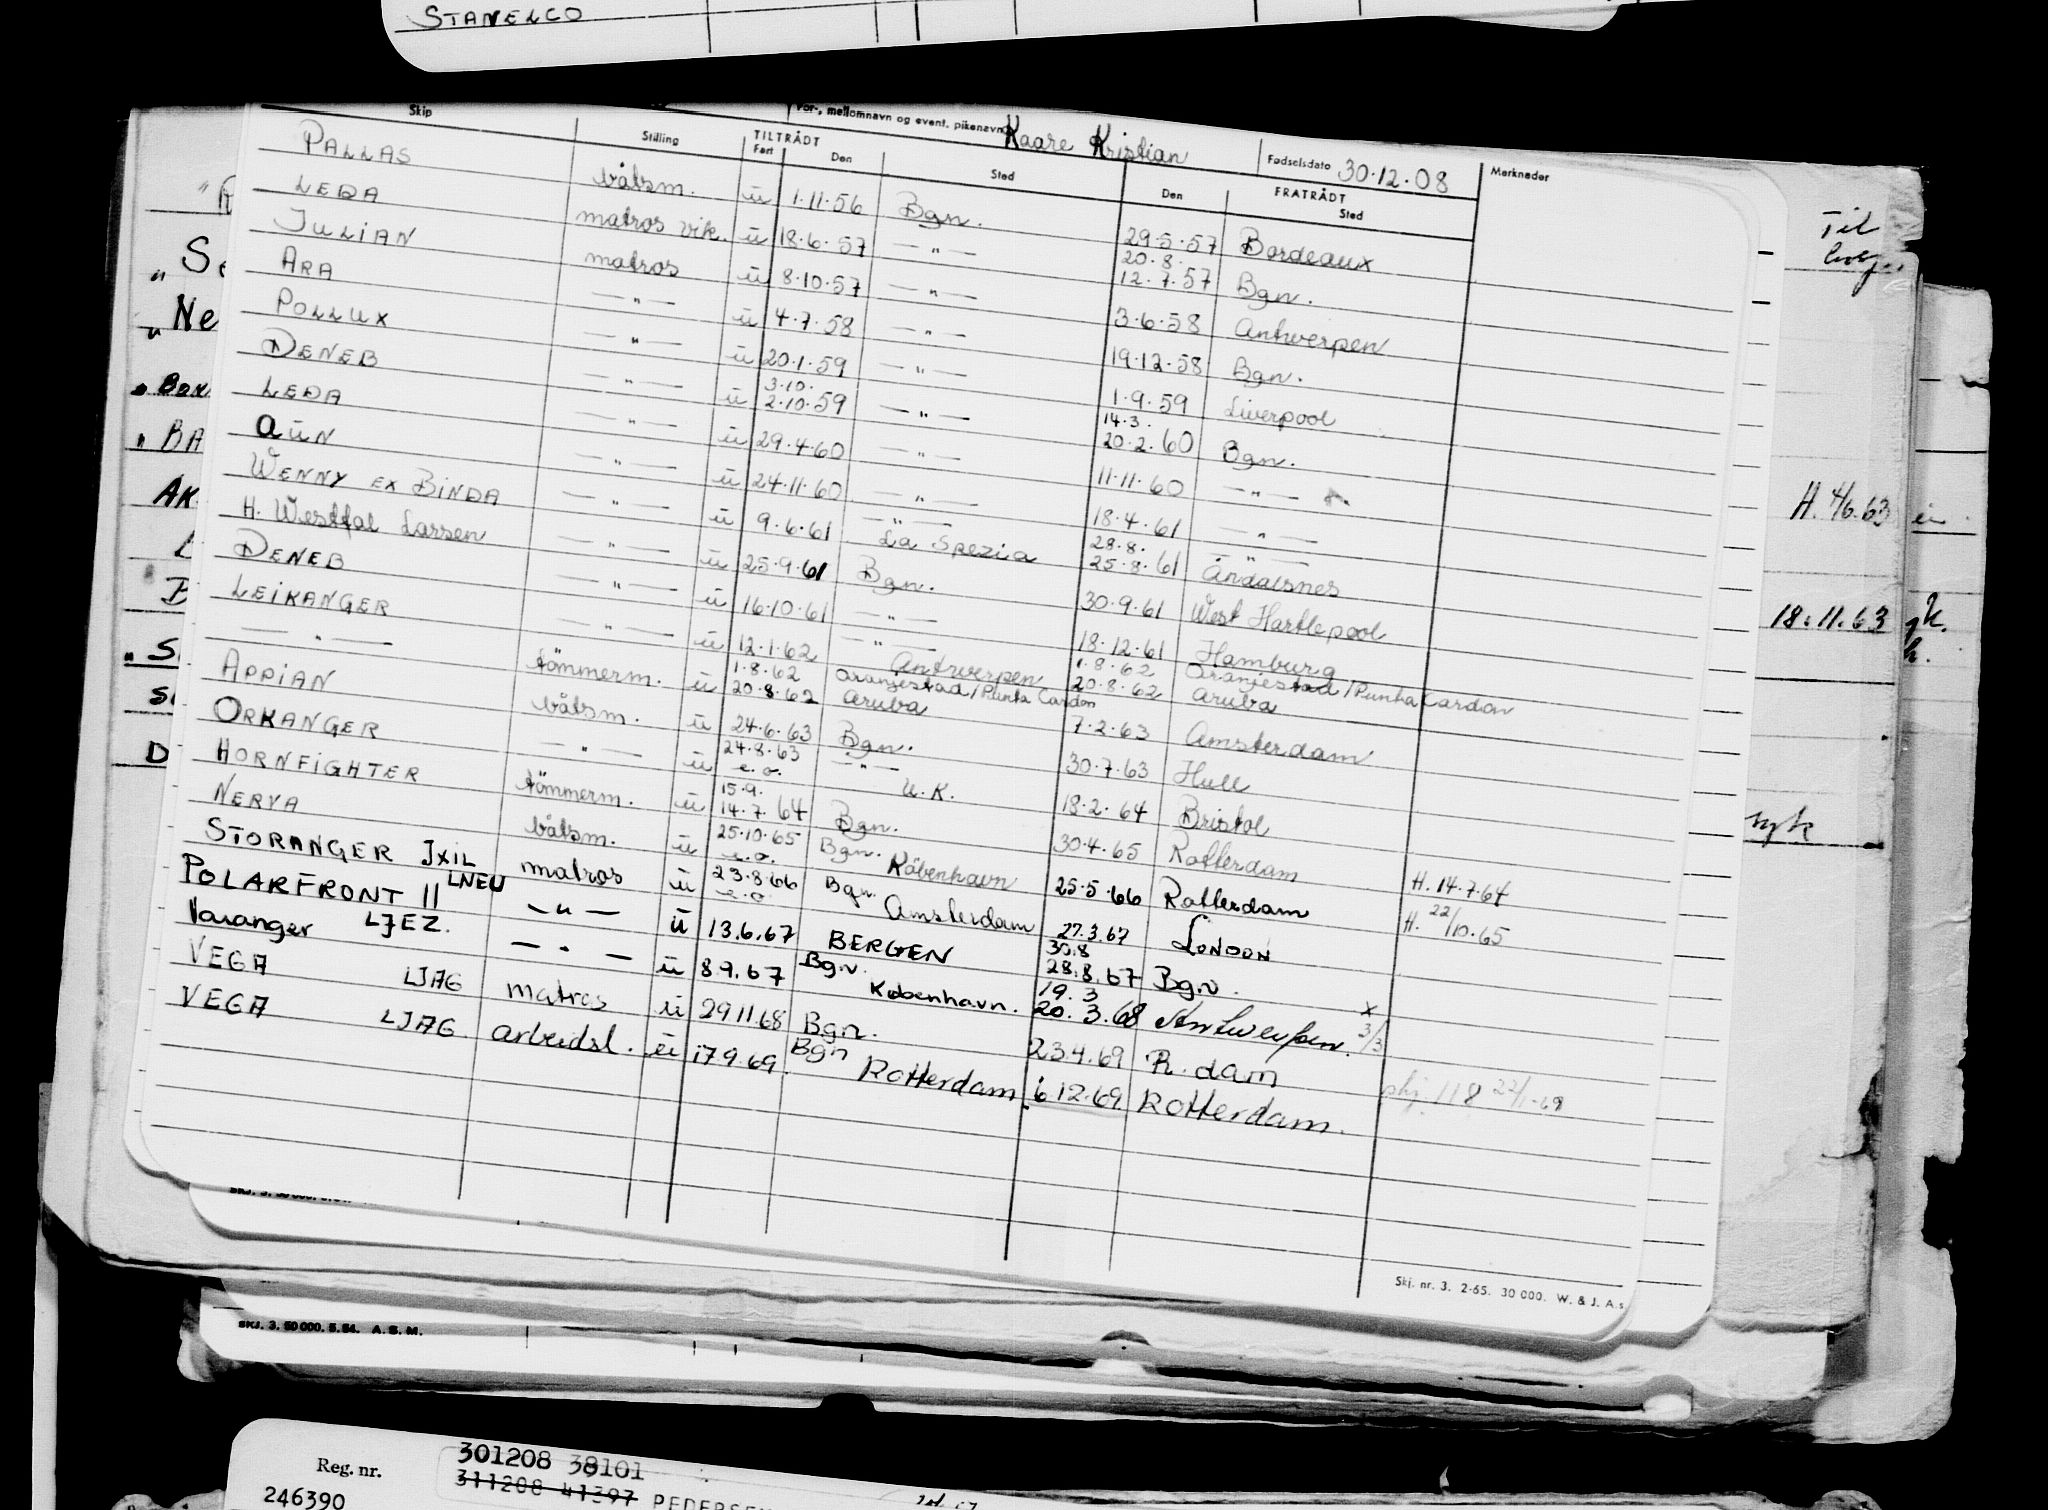 STANELCO
For-, mellomnavn og event. pikenavn Kaare Kristian Fødselsdato 30.12.08
Skip Stilling TILTRÅDT Fart Den Sted FRATRÅDT Den Sted Merknader
PALLAS båtsm. ü 1.11.56 Bgn. 29.5.57 Bordeaux
LEDA matros vik. ü 18.6.57 —"— 20.8. 12.7.57 Bgn.
JULIAN matros ü 8.10.57 —"— 3.6.58 Antwerpen
ARA —"— ü 4.7.58 —"— 19.12.58 Bgn.
POLLUX —"— ü 20.1.59 —"— 1.9.59 Liverpool
DENEB —"— ü 3.10. 2.10.59 —"— 14.3. 20.2.60 Bgn.
LEDA —"— ü 29.4.60 —"— 11.11.60 —"—
AUN —"— ü 24.11.60 —"— 18.4.61 —"—
WENNY EX BINDA —"— ü 9.6.61 —"— La Spezia 28.8. 25.8.61 —"— Åndalsnes
H. Westfal Larsen —"— ü 25.9.61 Bgn. 30.9.61 West Hartlepool
DENEB —"— ü 16.10.61 —"— 18.12.61 Hamburg
LEIKANGER —"— ü 12.1.62 —"— Antwerpen 1.8.62 Oranjestad/Punta Cardon
—"— tömmerm. ü 1.8.62 20.8.62 Oranjestad/Punta Cardon Aruba 20.8.62 Aruba
7.2.63 Amsterdam
APPIAN båtsm. ü 24.6.63 Bgn. 30.7.63 Hull
ORKANGER —"— ü 24.8.63 e.o. —"— U.K. 18.2.64 Bristol
HORNFIGHTER tömmerm. ü 15.9. 14.7.64 Bgn. 30.4.65 Rotterdam H. 14.7.64
NERVA båtsm. ü 25.10.65 e.o. Bgn. Köbenhavn 25.5.66 Rotterdam H. 22/10.65
STORANGER JXIL matros ü 23.8.66 e.o. Bgn. Amsterdam 27.3.67 LONDON
POLARFRONT II LNEU —"— ü 13.6.67 BERGEN 30.8 28.8.67 Bgn.
Varanger LJEZ. —"— ü 8.9.67 Bgn. København. 19.3 20.3.68 Antwerpen. x 3/3
VEGA LJAG matros ü 29.11.68 Bgn. 23.4.69 R.dam
VEGA LJAG arbeidsl. ü 17.9.69. Bgn Rotterdam. 6.12.69 Rotterdam.
118 22/1-69
Skj. nr. 3. 2-65. 30 000. W. & J. A.s
Til
„ Se
„ Ne
„ BA
AK
H. 4/6.63
18.11.63
SKJ. 3. 50 000. 5.54. A. S. M.
Reg. nr. 301208 38101
311208 41397 PEDERSEN
246390